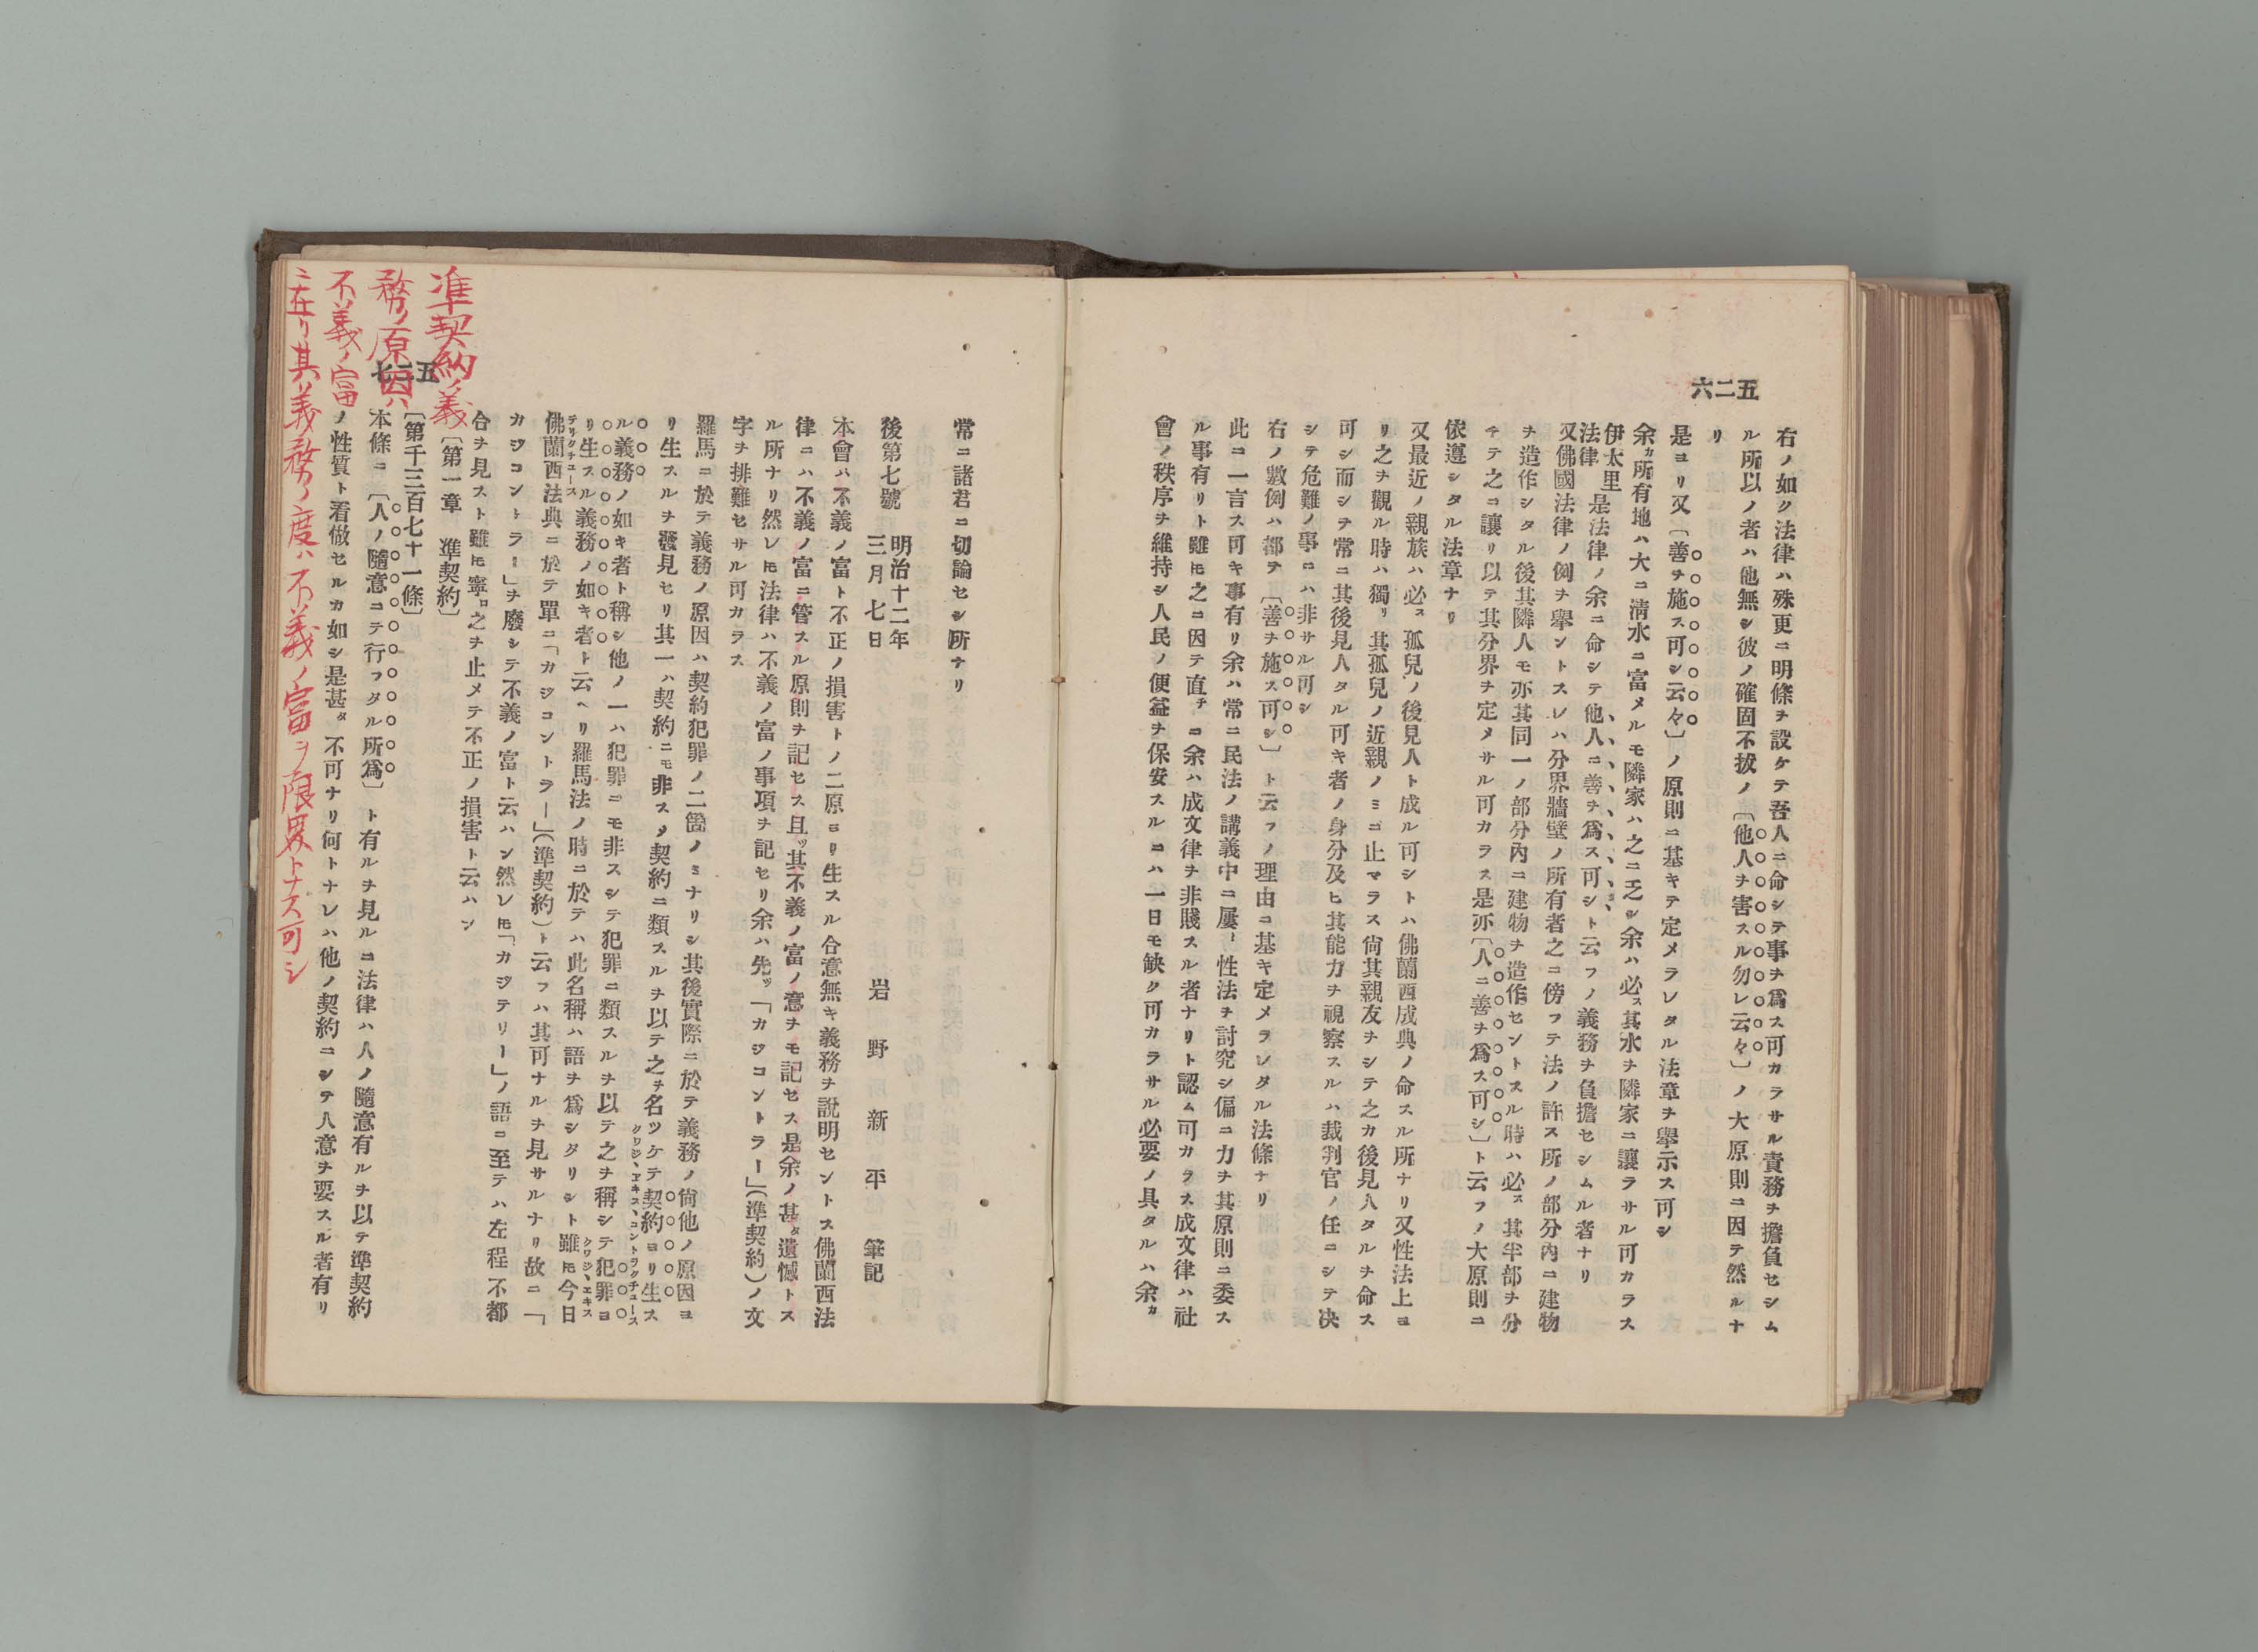 五二六
右ノ如ク法律ハ殊更ニ明條ヲ設ケテ吾人ニ命シテ事ヲ爲ス可カラサル責務ヲ擔負セシム
ル所以ノ者ハ他無シ彼ノ確固不拔ノ〔他人ヲ害スル勿レ云々〕ノ大原則ニ因テ然ルナ
リ
是ヨリ又〔善ヲ施ス可シ云々〕ノ原則ニ基キテ定メラレタル法章ヲ擧示ス可シ
余カ所有地ハ大ニ清水ニ富メルモ隣家ハ之ニ乏シ余ハ必ス其水ヲ隣家ニ讓ラサル可カラス
伊太里
法律 是法律ノ余ニ命シテ他人ニ善ヲ爲ス可シト云フノ義務ヲ負擔セシムル者ナリ
又佛國法律ノ例ヲ擧ントスレハ分界牆壁ノ所有者之ニ傍フテ法ノ許ス所ノ部分內ニ建物
ヲ造作シタル後其隣人モ亦其同一ノ部分內ニ建物ヲ造作セントスル時ハ必ス其半部ヲ分
テ之ニ讓リ以テ其分界ヲ定メサル可カラス是亦〔人ニ善ヲ爲ス可シ〕ト云フノ大原則ニ
依遵シタル法章ナリ
又最近ノ親族ハ必ス孤兒ノ後見人ト成ル可シトハ佛蘭西成典ノ命スル所ナリ又性法上ヨ
リ之ヲ觀ル時ハ獨リ其孤兒ノ近親ノミニ止マラス尙其親友ヲシテ之カ後見人タルヲ命ス
可シ而シテ常ニ其後見人タル可キ者ノ身分及ヒ其能力ヲ視察スルハ裁判官ノ任ニシテ决
シテ危難ノ事ニハ非サル可シ
右ノ數例ハ都テ〔善ヲ施ス可シ〕ト云フノ理由ニ基キ定メラレタル法條ナリ
此ニ一言ス可キ事有リ余ハ常ニ民法ノ講義中ニ屢〻性法ヲ討究シ偏ニ力ヲ其原則ニ委ス
ル事有リト雖モ之ニ因テ直チニ余ハ成文律ヲ非賤スル者ナリト認ム可カラス成文律ハ社
會ノ秩序ヲ維持シ人民ノ便益ヲ保安スルニハ一日モ缺ク可カラサル必要ノ具タルハ余カ
常ニ諸君ニ切論セシ所ナリ
後第七號 明治十二年
三月七日 岩野新平 筆記
本會ハ不義ノ富ト不正ノ損害トノ二原ヨリ生スル合意無キ義務ヲ說明セントス佛蘭西法
律ニハ不義ノ富ニ管スル原則ヲ記セス且ツ其不義ノ富ノ意ヲモ記セス是余ノ甚タ遺憾トス
ル所ナリ然レモ法律ハ不義ノ富ノ事項ヲ記セリ余ハ先ツ「カジコントラー」(準契約)ノ文
字ヲ排難セサル可カラス
羅馬ニ於テ義務ノ原因ハ契約犯罪ノ二箇ノミナリシ其後實際ニ於テ義務ノ尙他ノ原因ヨ
リ生スルヲ發見セリ其一ハ契約ニモ非スタ契約ニ類スルヲ以テ之ヲ名ツケテ契約ヨリ生ス
クワジ、エキス、コントラクチュース
ル義務ノ如キ者ト稱シ他ノ一ハ犯罪ニモ非スシテ犯罪ニ類スルヲ以テ之ヲ稱シテ犯罪ヨ
クワジ、エキス
リ生スル義務ノ如キ者ト云ヘリ羅馬法ノ時ニ於テハ此名稱ハ語ヲ爲シタリシト雖モ今日
デリクチュース
佛蘭西法典ニ於テ單ニ「カジコントラー」(準契約)ト云フハ其可ナルヲ見サルナリ故ニ「
カジコントラー」ヲ廢シテ不義ノ富ト云ハン然レモ「カジデリー」ノ語ニ至テハ左程不都
合ヲ見スト雖モ寧ロ之ヲ止メテ不正ノ損害ト云ハン
〔第一章 準契約〕
〔第千三百七十一條〕
本條ニ〔人ノ隨意ニテ行フタル所爲〕ト有ルヲ見ルニ法律ハ人ノ隨意有ルヲ以テ準契約
ノ性質ト看做セルカ如シ是甚タ不可ナリ何トナレハ他ノ契約ニシテ人意ヲ要スル者有リ
五二七
準契約ノ義
務ノ原因ハ
不義ノ富
ニ在リ其義務ノ度ハ不義ノ富ヲ限界トナス可シ